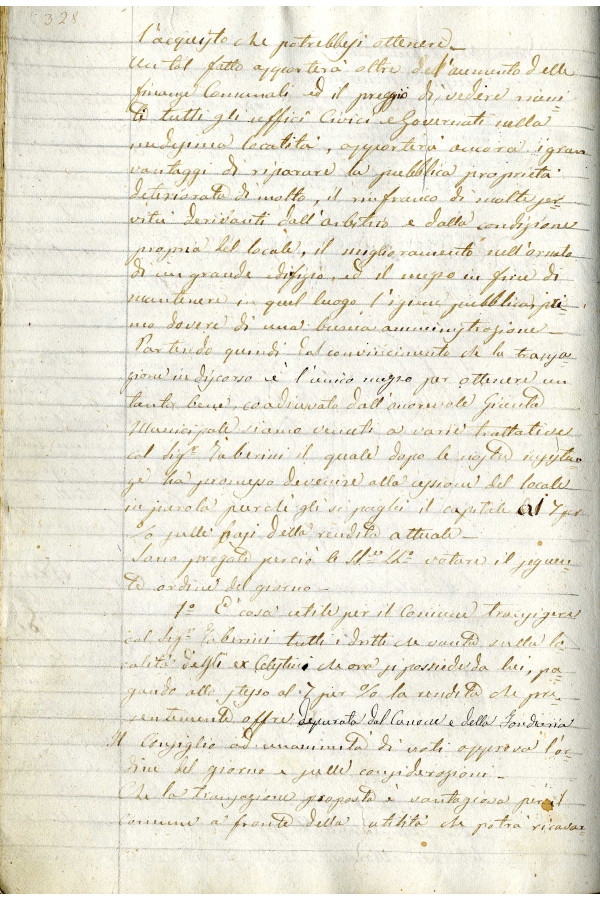 328
l'acquisto che potrebbesi ottenere_
Un tal fatto apporterà oltre del'aumento delle
finanze Comunali ed il preggio di vedere riuni=
ti tutti gli uffici Civici e Governati nella
medesima località, apporterà ancora i gran
vantaggi di riparare la pubblica proprietà
deteriorata di molto, il rinfranco di molte ser=
vitù derivanti dall'arbitrio e dalla condizione
propria del locale, il miglioramento nell'ornato
di un grande edifizio, ed il mezzo in fine di
mantenere in quel luogo l'igiene pubblica pri=
mo dovere di una buona amministrazione_
Partendo quindi dal convincimento che la transa=
zione in discorso è l'unico mezzo per ottenere un
tanto bene, coadiuvato dall'onorevole Giunta
Municipale siamo venuti a varie trattative
col Sig.r Taberini il quale dopo le nostre insistan
ze ha promesso devenire alla cessione del locale
in parola purchè gli si paghi il capitale al 7 per
% sulle basi della rendita attuale_
Sono pregati perciò le SS.LL. votare il seguen=
te ordine del giorno_
1.o È cosa utile per il Comune transigere
col Sig.r Taberini tutti i dritti che vanta sulla lo
calità degli ex Celestini che ora si possiede da lui, pa=
gando allo stesso al 7 per % la rendita che pre=
sentemente offre depurata del Canone e della fondiaria
Il Consiglio ad unanimità di voti approva l'or=
dine del giorno e sulle considerazioni_
Che la transazione proposta è vantagiosa per il
Comune a fronte della utilità che potrà ricavar=